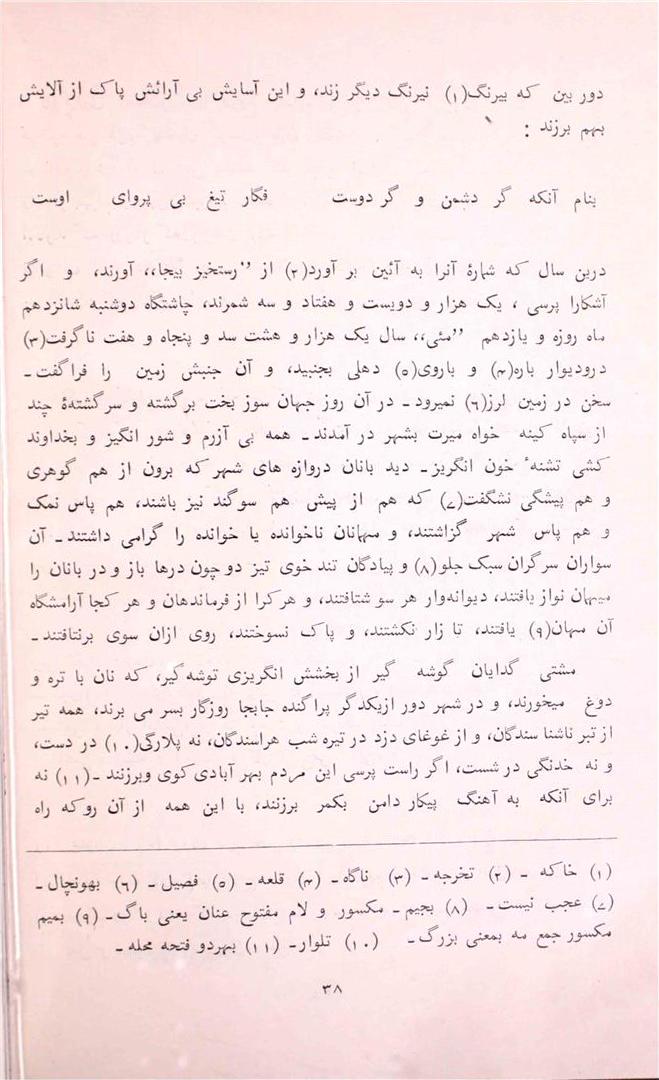 دور بین که بیرنگ(۱) نیرنگ دیگر زند، و این آسایش بی آرائش پاک از آلایش
بہم برزند :
بنام آنکہ گر دشمن و گر دوست فگار تیغ بی پروای اوست
درین سال که شمارهٔ آنرا به آئین بر آورد(۲) از ”رستخیز بیجا،، آورند، و اگر
آشکارا پرسی ، یک هزار و دویست و هفتاد و سه شمرند، چاشتگاه دوشنبه شانزدهم
ماه روزه و یازدهم ”مئی،، سال یک هزار و هشت سد و پنجاه و هفت ناگرفت(۳)
درودیوار باره(۴) و باروی(۵) دهلی بجنبید، و آن جنبش زمین را فرا گفت ۔
سخن در زمین لرز(۶) نمیرود ۔ در آن روز جہان سوز بخت برگشته و سرگشتهٔ چند
از سپاه کینه خواه میرت بشہر در آمدند ۔ همه بی آزرم و شور انگیز و بخداوند
کشی تشنهٔ خون انگریز ۔ دید بانان دروازه های شہر که برون از هم گوهری
و هم پیشگی نشگفت(۷) که هم از پیش هم سوگند نیز باشند، هم پاس نمک
و هم پاس شہر گزاشتند، و مہمانان ناخوانده یا خوانده را گرامی داشتند ۔ آن
سواران سرگران سبک جلو(۸) و پیادگان تند خوی تیز دو چون درها باز و در بانان را
میہمان نواز یافتند، دیوانه‌وار هر سو شتافتند، و هرکرا از فرماندهان و هر کجا آرامشگاه
آن مہان(۹) یافتند، تا زار نکشتند، و پاک نسوختند، روی ازان سوی برنتافتند ۔
مشتی گدایان گوشه گیر از بخشش انگریزی توشه گیر، که نان با تره و
دوغ میخورند، و در شہر دور ازیکدگر پراگنده جابجا روزگار بسر می برند، همه تیر
از تبر ناشنا سندگان، و از غوغای دزد در تیره شب هراسندگان، نه پلارگی(۱۰) در دست،
و نه خدنگی در شست، اگر راست پرسی این مردم بہر آبادی کوی وبرزنند ۔(۱۱) نه
برای آنکه به آهنگ پیکار دامن بکمر برزنند، با این همه از آن رو که راه
(۱) خاکه ۔ (۲) تخرجه ۔ (۳) ناگاه ۔ (۴) قلعه ۔ (۵) فصیل ۔ (۶) بھونچال ۔
(۷) عجب نیست ۔ (۸) بجیم ۔ مکسور و لام مفتوح عنان یعنی باگ ۔ (۹) بمیم
مکسور جمع مه بمعنی بزرگ ۔ (۱۰) تلوار ۔ (۱۱) بہردو فتحه محله ۔
۳۸